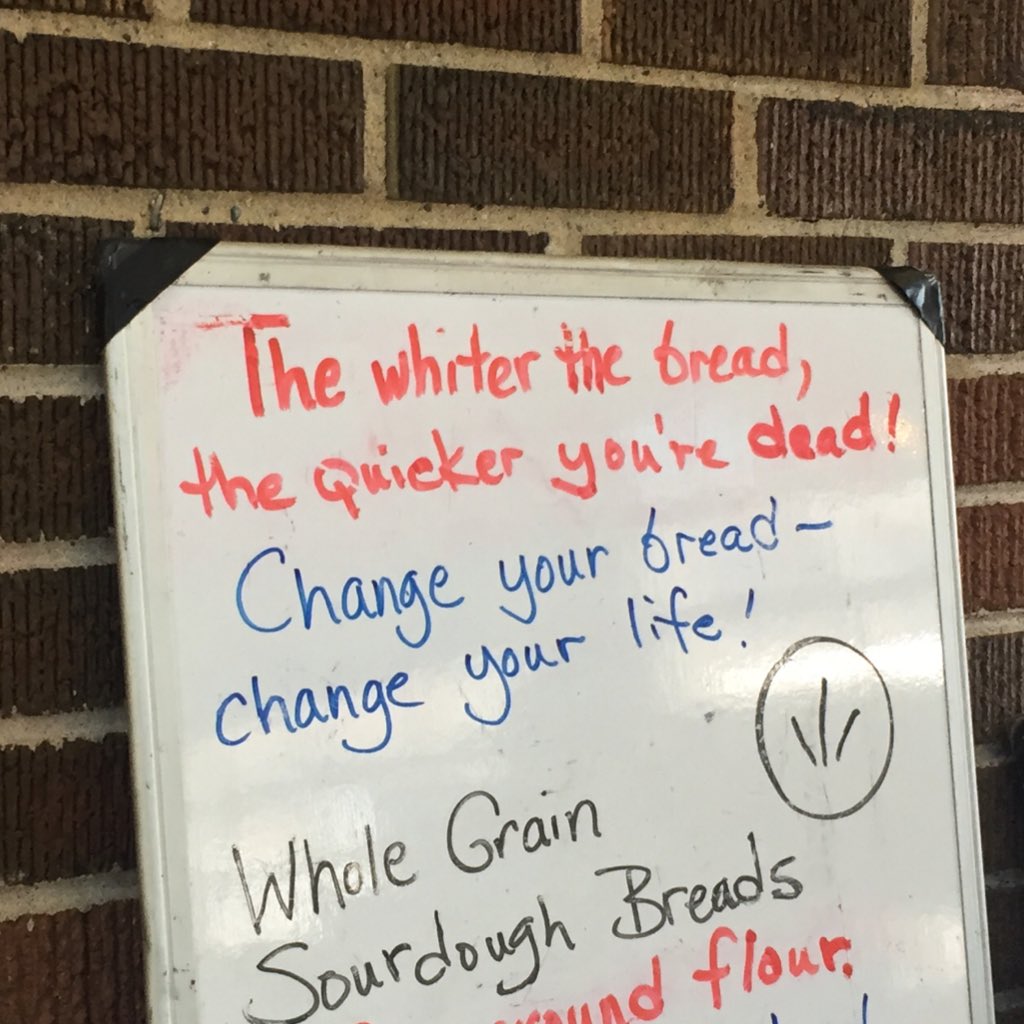 The whiter the bread,
the quicker you're dead!
Change your bread –
change your life!
Whole Grain
Sourdough Breads
flour.